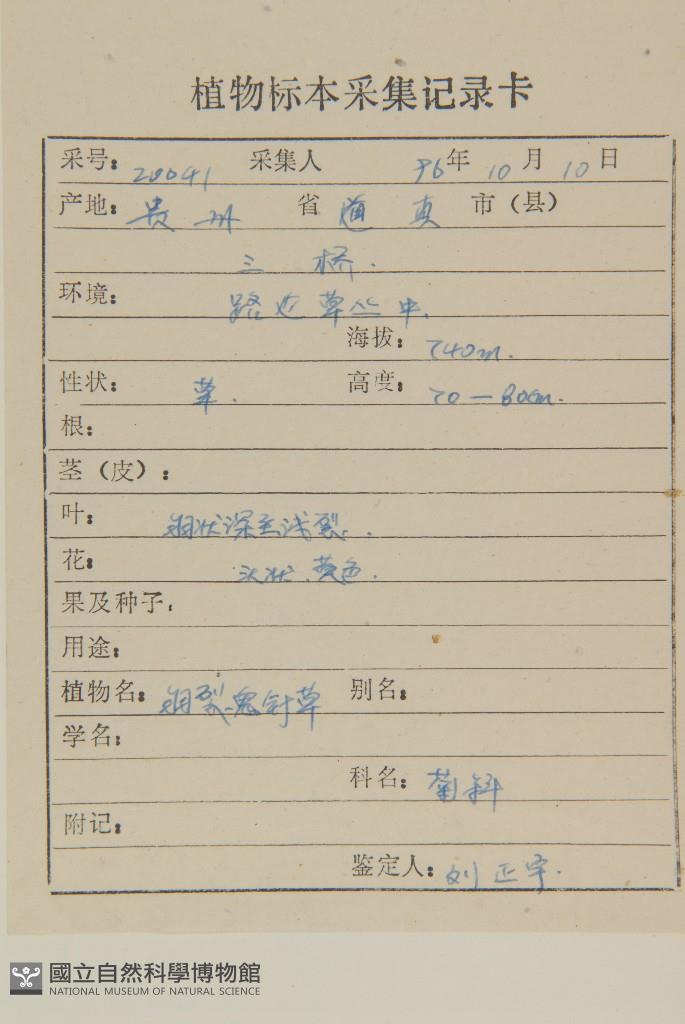 植物标本采集记录卡
采号: 20041 采集人 96年 10月 10日
产地: 贵州 省 道真 市(县)
三桥.
环境: 路边草丛中.
海拔: 740m.
性状: 草. 高度: 70—80cm.
根:
茎(皮):
叶: 羽状深至浅裂.
花: 头状.黄色.
果及种子:
用途:
植物名: 羽裂鬼针草 别名:
学名:
科名: 菊科
附记:
鉴定人: 刘正宇.
國立自然科學博物館
NATIONAL MUSEUM OF NATURAL SCIENCE